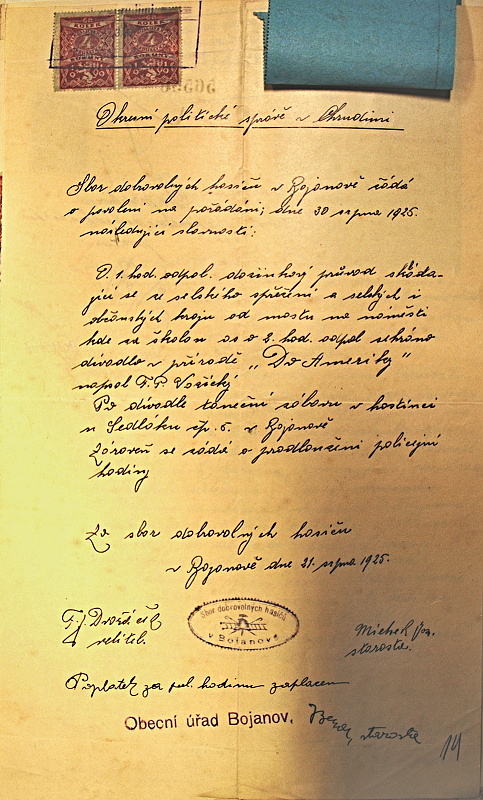 Okresní politické správě v Chrudimi
Sbor dobrovolných hasičů v Bojanově žádá
o povolení na pořádání, dne 30 srpna 1925.
následující slavnosti:
O 1. hod. odpol. dožínkový průvod skláda-
jící se ze selského spřežení a selských i
občanských krojů od mostu na náměstí
kde za školou as o 3. hod. odpol sehráno
divadlo v přírodě „Do Ameriky"
napsal F. P. Vožický
Po divadle taneční zábava v hostinci
u Sedláků čp. 6. v Bojanově
Zároveň se žádá o prodloužení policejní
hodiny
Za sbor dobrovolných hasičů
v Bojanově dne 21. srpna 1925.
velitel.
Sbor dobrovolných hasičů
v Bojanově
Michek Jos.
starosta.
Poplatek za pol. hodinu zaplacen
Obecní úřad Bojanov,
starosta
14